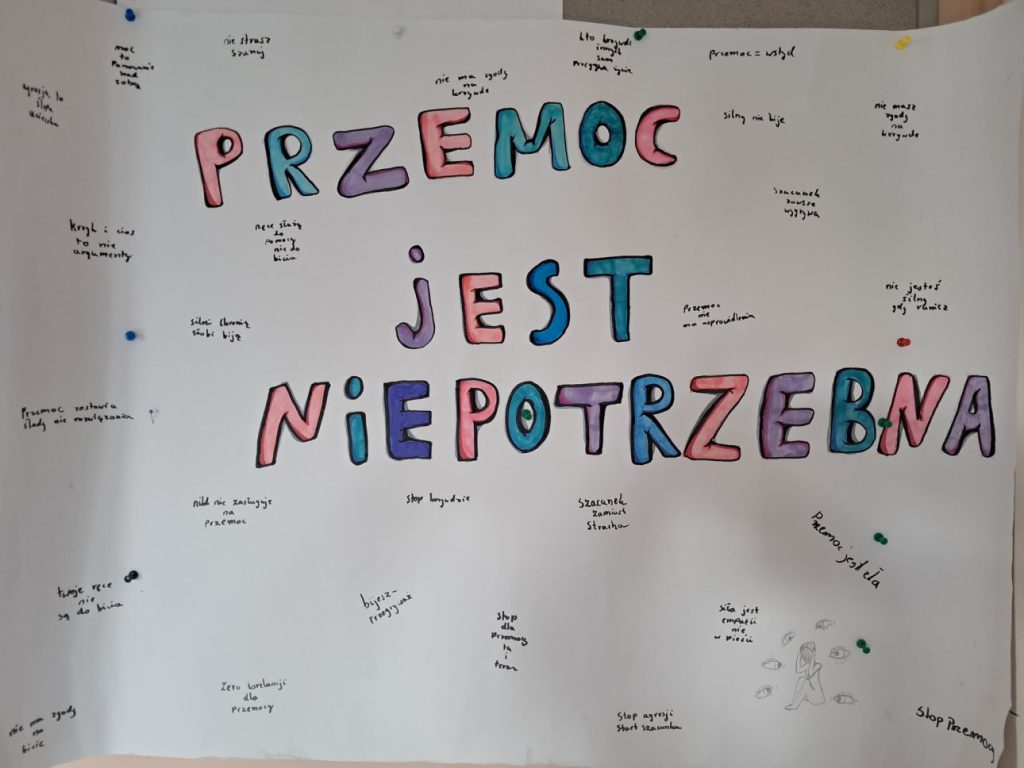 moc
to
Panowanie
nad
sobą
nie strasz
Szanuj
kto krzywdzi
innych
sam
Przegrywa życie
przemoc = wstyd
nie ma zgody
na
krzywde
agresja to
ślepa
uliczka
Silny nie bije
nie masz
zgody
na
krzywde
PRZEMOC
Szacunek
zawsze
wygrywa
Krzyk i cios
to nie
argumenty
Ręce służą
do
Pomocy
nie do
bicia
jEST
nie jesteś
silny
gdy ranisz
Przemoc
nie
ma usprawidlenia
silni chronią
słabi biją
NiEPOTRZEBNA
Przemoc zostawia
ślady nie rozwiązania
nikt nie zasługuje
na
Przemoc
Stop krzywdzie
Szacunek
zamiast
Strachu
Przemoc jest zła
twoje ręce
nie
są do bicia
bijesz-
przegrywasz
Stop
dla
Przemocy
tu
i
teraz
siła jest
empatii
nie
w Pięści
Zero torelancji
dla
przemocy
nie ma zgody
na
bicie
Stop agresji
Start szacunku
Stop Przemocy